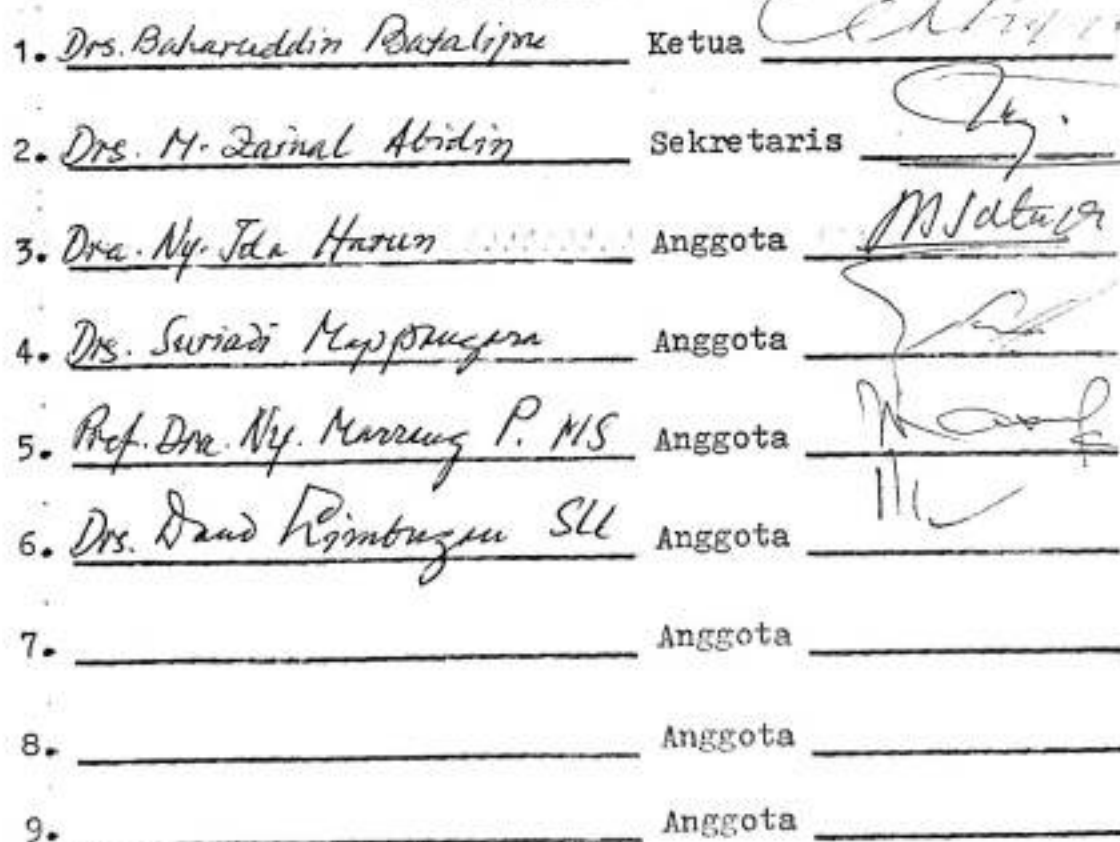 1. Drs. Baharuddin Batalipu Ketua
2. Drs. M. Zainal Abidin Sekretaris
3. Dra. Ny. Ida Harun Anggota
4. Drs. Suriadi Mappangara Anggota
5. Prof. Dra. Ny. Marrang P. MS Anggota
6. Drs. Daud Limbugau SU Anggota
7. Anggota
8. Anggota
9. Anggota